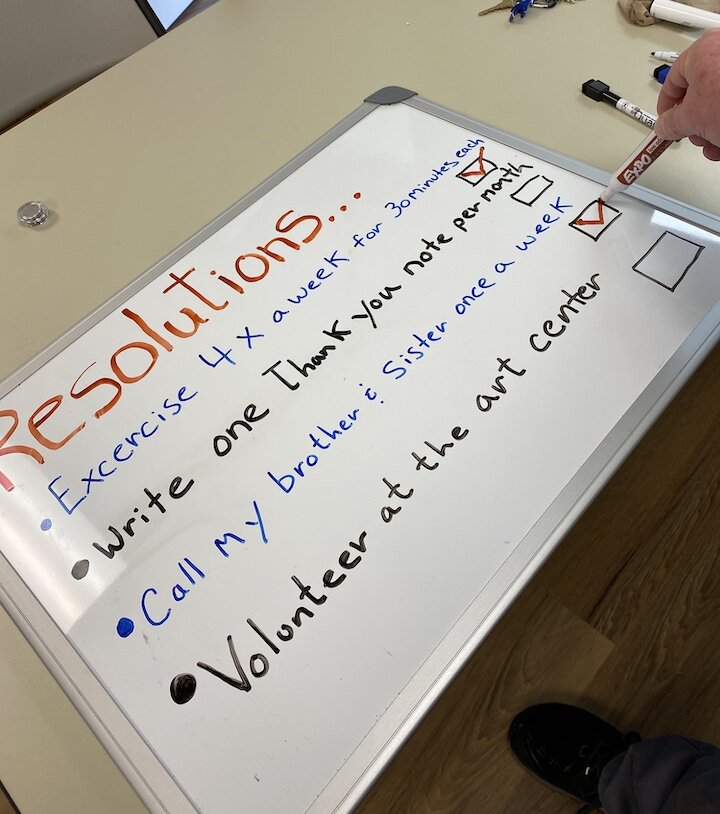 Resolutions...
• Excercise 4x a week for 30 minutes each
• Write one Thank you note per month
• Call my brother & Sister once a week
• Volunteer at the art center
EXPO